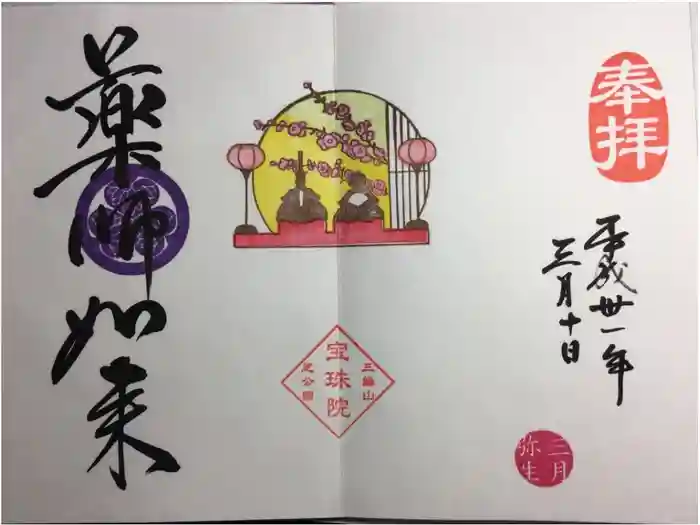 奉拝
平成丗一年
三月十日
三月
弥生
三緣山
宝珠院
芝公園
薬師如来